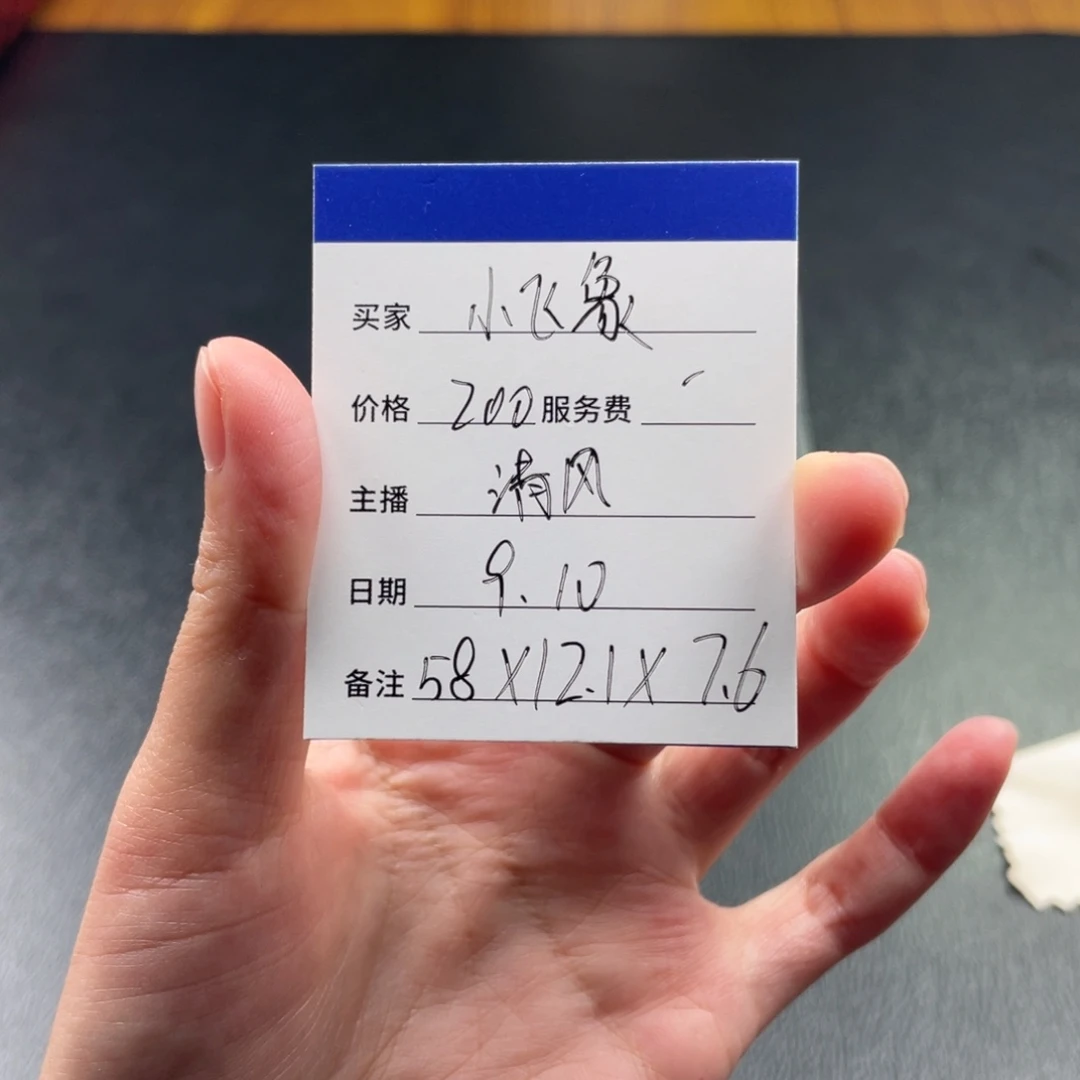 买家 小飞象
价格 200 服务费 -
主播 清风
日期 9.10
备注 58X12.1X7.6